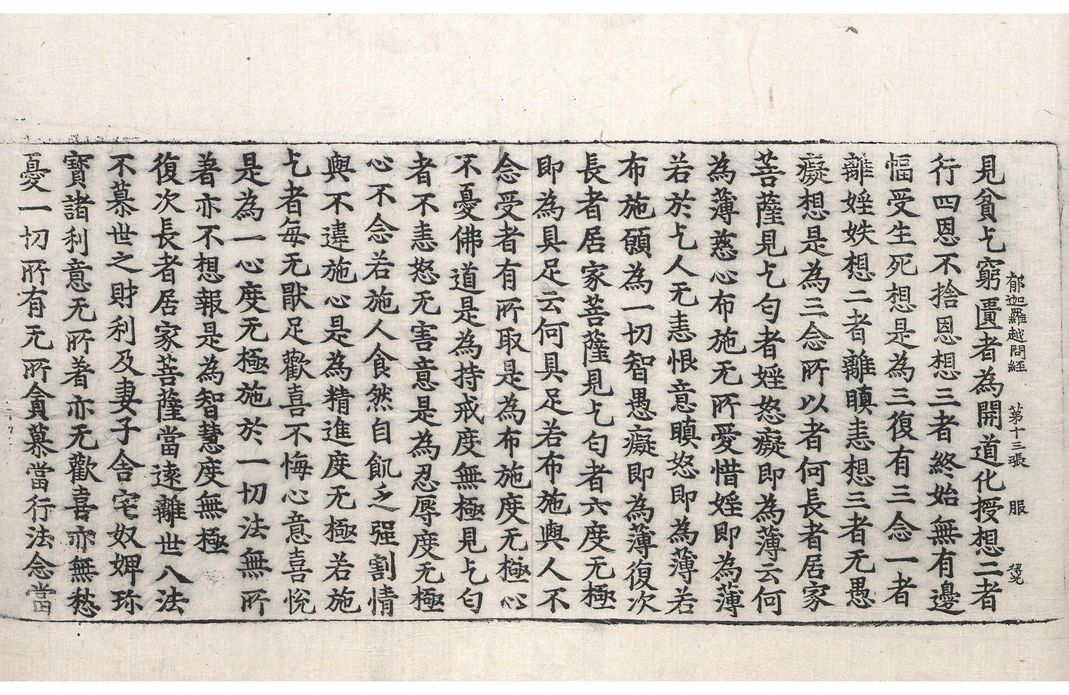 郁迦羅越問経 第十三張 服
見貧乞窮匱者為開道化授想二者
行四恩不捨恩想三者終始無有邊
幅受生死想是為三復有三念一者
離婬妷想二者離瞋恚想三者无愚
癡想是為三念所以者何長者居家
菩薩見乞匃者婬怒癡即為薄云何
為薄慈心布施无所愛惜婬即為薄
若於乞人无恚恨意瞋怒即為薄若
布施願為一切智愚癡即為薄復次
長者居家菩薩見乞匃者六度无極
即為具足云何具足若布施與人不
念受者有所取是為布施度无極心
不憂佛道是為持戒度無極見乞匃
者不恚怒无害意是為忍辱度无極
心不念若施人食然自飢乏强割情
與不違施心是為精進度无極若施
乞者每无猒足歡喜不悔心意喜悅
是為一心度无極施於一切法無所
著亦不想報是為智慧度無極
復次長者居家菩薩當遠離世八法
不慕世之財利及妻子舍宅奴婢珎
寶諸利意无所著亦无歡喜亦無愁
憂一切所有无所貪慕當行法念當